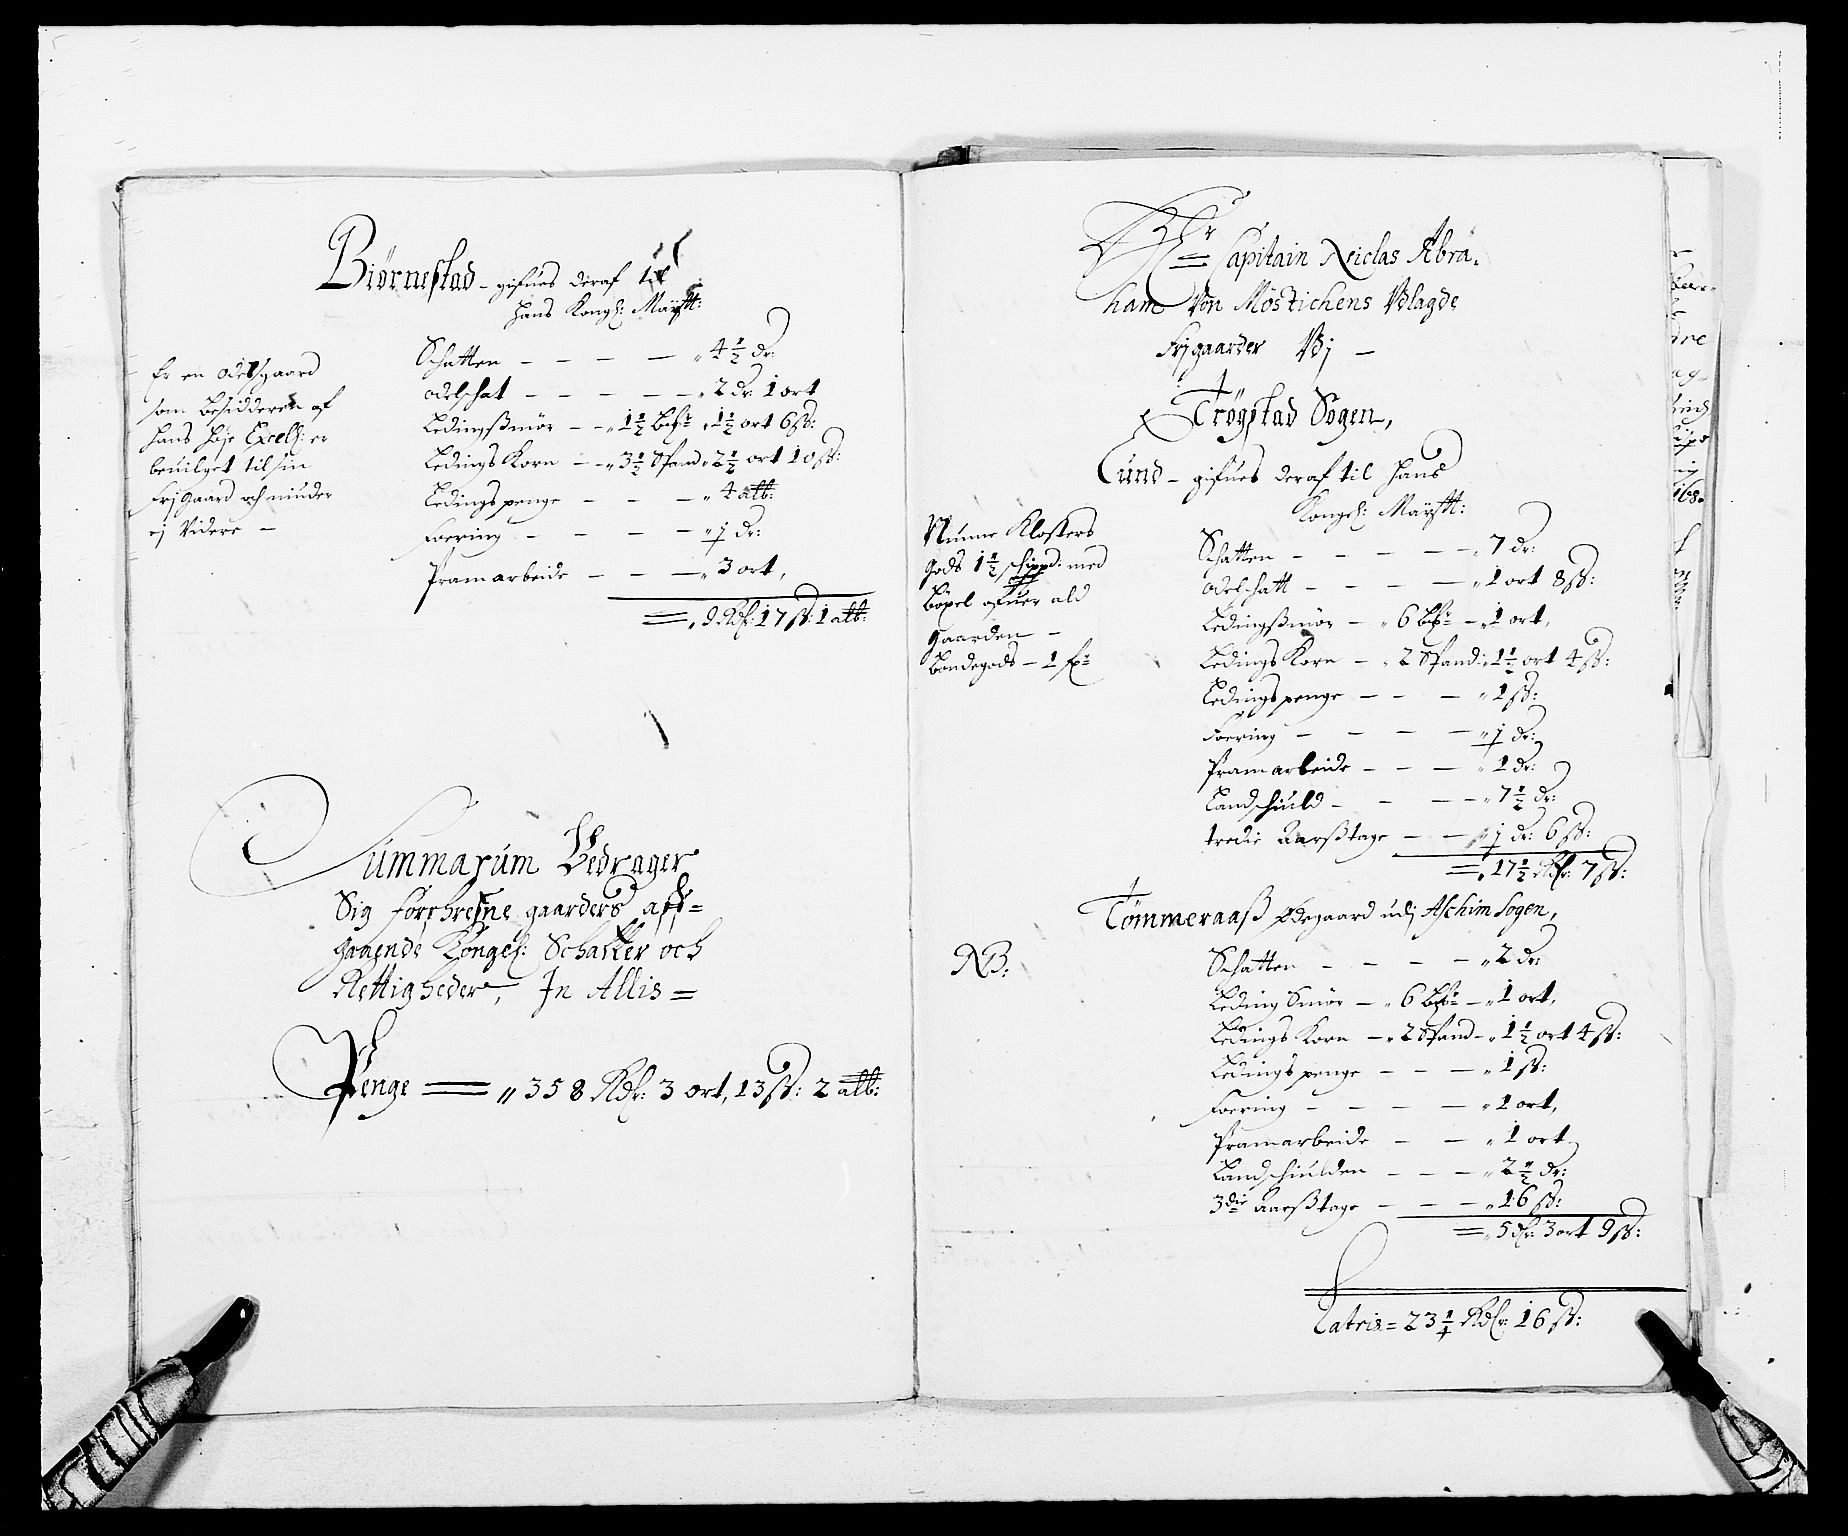 Biørnestad – gifues deraf til
hans Kongl: Maÿstt:
Er en odelsgaard
som besidderen af
hans høje Excell: er
beuilget til sin
frj Gaard och niuder
ej Videre –
Schatten – – – – „ 4 1/2 dr:
odelschat – – – – – „ 2 dr: 1 ort
Ledingßmör – – „ 1 1/2 „ 1 1/2 ort 6 ß:
Ledings Korn – – „ 3 1/2 Spand „ 2 1/2 ort 10 ß:
Ledingspenge – – – „ 4 alb:
Foering – – – – „ j dr:
Pramarbeide – – – „ 3 ort,
= „ 9 Rdr: 17 ß: 1 alb:
Summarum Bedrager
Sig forschrefne gaarders aff=
gaaende Kongel: Schatter och
Rettigheder, In Allis =
Penge = „ 358 Rdr: 3 ort, 13 ß: 2 alb:
Hr = Capitain Niclas Abra-
ham Von Möstichens Vdlagde
Frjgaarder Vdj –
Trögstad Sogen,
Lund – gifues deraf til hans
Kongel: Maÿstt:
Nunne Klosters
gods 1 1/2 schippd: med
böxel ofuer ald
gaarden –
bondegods – 1
Schatten – – – – – „ 7 dr:
odelschatt – – – – „ 1 ort 8 ß:
Ledingßmör – „ 6 – „ 1 ort,
Ledings Korn – „ 2 Spand „ 1 1/2 ort 4 ß:
Ledingspenge – – – „ 1 ß:
Foering – – – – – „ j dr:
Pramarbeide – – – „ 1 dr:
Landschuld – – – – „ 7 1/2 dr:
tredie Aarßtage – – „ j dr: 6 ß:
= „ 17 1/2 Rdr: 7 ß:
Tömmeraaß Ødegaard udj Aschim Sogen,
NB:
Schatten – – – – „ 2 dr:
Leding Smör – „ 6 – „ 1 ort,
Ledings Korn – „ 2 Spand – „ 1 1/2 ort 4 ß:
Ledings penge – – – „ 1 ß:
Foering – – – – „ 1 ort,
Pramarbeide – – „ 1 ort
Landschulden – – – „ 2 1/2 dr:
3die Aarßtage – – – „ 16 ß:
= „ 5 dr: 3 ort 9 ß:
Lateris = 23 1/4 Rdr: 16 ß: